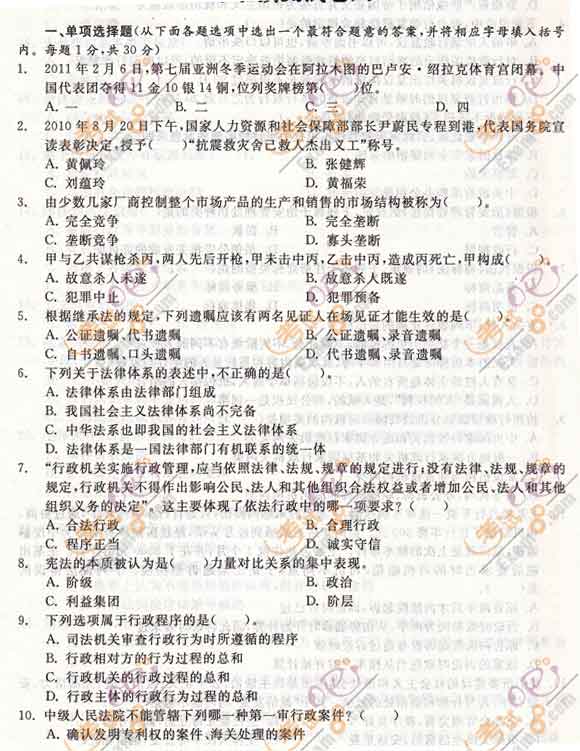 一、单项选择题(从下面各题选项中选出一个最符合题意的答案,并将相应字母填入括号
内。每题1分,共30分)
1. 2011年2月6日,第七届亚洲冬季运动会在阿拉木图的巴卢安·绍拉克体育宫闭幕。中
国代表团夺得11金10银14铜,位列奖牌榜第(  )位。
A. 一 B. 二 C. 三 D. 四
2. 2010年8月20日下午,国家人力资源和社会保障部部长尹蔚民专程到港,代表国务院宣
读表彰决定,授予(  )“抗震救灾舍己救人杰出义工”称号。
A. 黄佩玲 B. 张健辉
C. 刘蕴玲 D. 黄福荣
3. 由少数几家厂商控制整个市场产品的生产和销售的市场结构被称为(  )。
A. 完全竞争 B. 完全垄断
C. 垄断竞争 D. 寡头垄断
4. 甲与乙共谋枪杀丙,两人先后开枪,甲未击中丙,乙击中丙,造成丙死亡,甲构成(  )。
A. 故意杀人未遂 B. 故意杀人既遂
C. 犯罪中止 D. 犯罪预备
5. 根据继承法的规定,下列遗嘱应该有两名见证人在场见证才能生效的是(  )。
A. 公证遗嘱、代书遗嘱 B. 公证遗嘱、录音遗嘱
C. 自书遗嘱、口头遗嘱 D. 代书遗嘱、录音遗嘱
6. 下列关于法律体系的表述中,不正确的是(  )。
A. 法律体系由法律部门组成
B. 我国社会主义法律体系尚不完备
C. 中华法系也即我国的社会主义法律体系
D. 法律体系是一国法律部门有机联系的统一体
7. “行政机关实施行政管理,应当依照法律、法规、规章的规定进行;没有法律、法规、规章的
规定,行政机关不得作出影响公民、法人和其他组织合法权益或者增加公民、法人和其他
组织义务的决定”。这主要体现了依法行政中的哪一项要求?(  )
A. 合法行政 B. 合理行政
C. 程序正当 D. 诚实守信
8. 宪法的本质被认为是(  )力量对比关系的集中表现。
A. 阶级 B. 政治
C. 利益集团 D. 阶层
9. 下列选项属于行政程序的是(  )。
A. 司法机关审查行政行为时所遵循的程序
B. 行政相对方的行为过程的总和
C. 行政机关的行政过程的总和
D. 行政主体的行政行为过程的总和
10. 中级人民法院不能管辖下列哪一种第一审行政案件?(  )
A. 确认发明专利权的案件、海关处理的案件